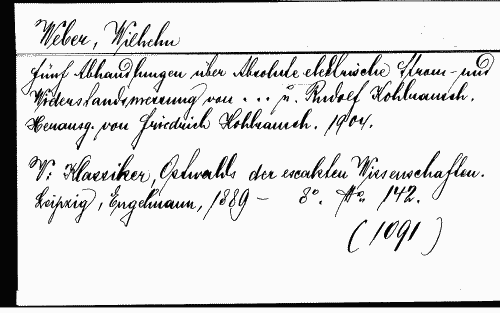 Weber, Wilhelm
Fünf Abhandlungen über Absolute elektrische Strom- und
Widerstandsmessung von ... u. Rudolf Kohlrausch.
Herausg. von Friedrich Kohlrausch. 1904.
V: Klassiker, Ostwalds der exakten Wissenschaften.
Leipzig, Engelmann, 1889 - 8°. No 142.
(1091)